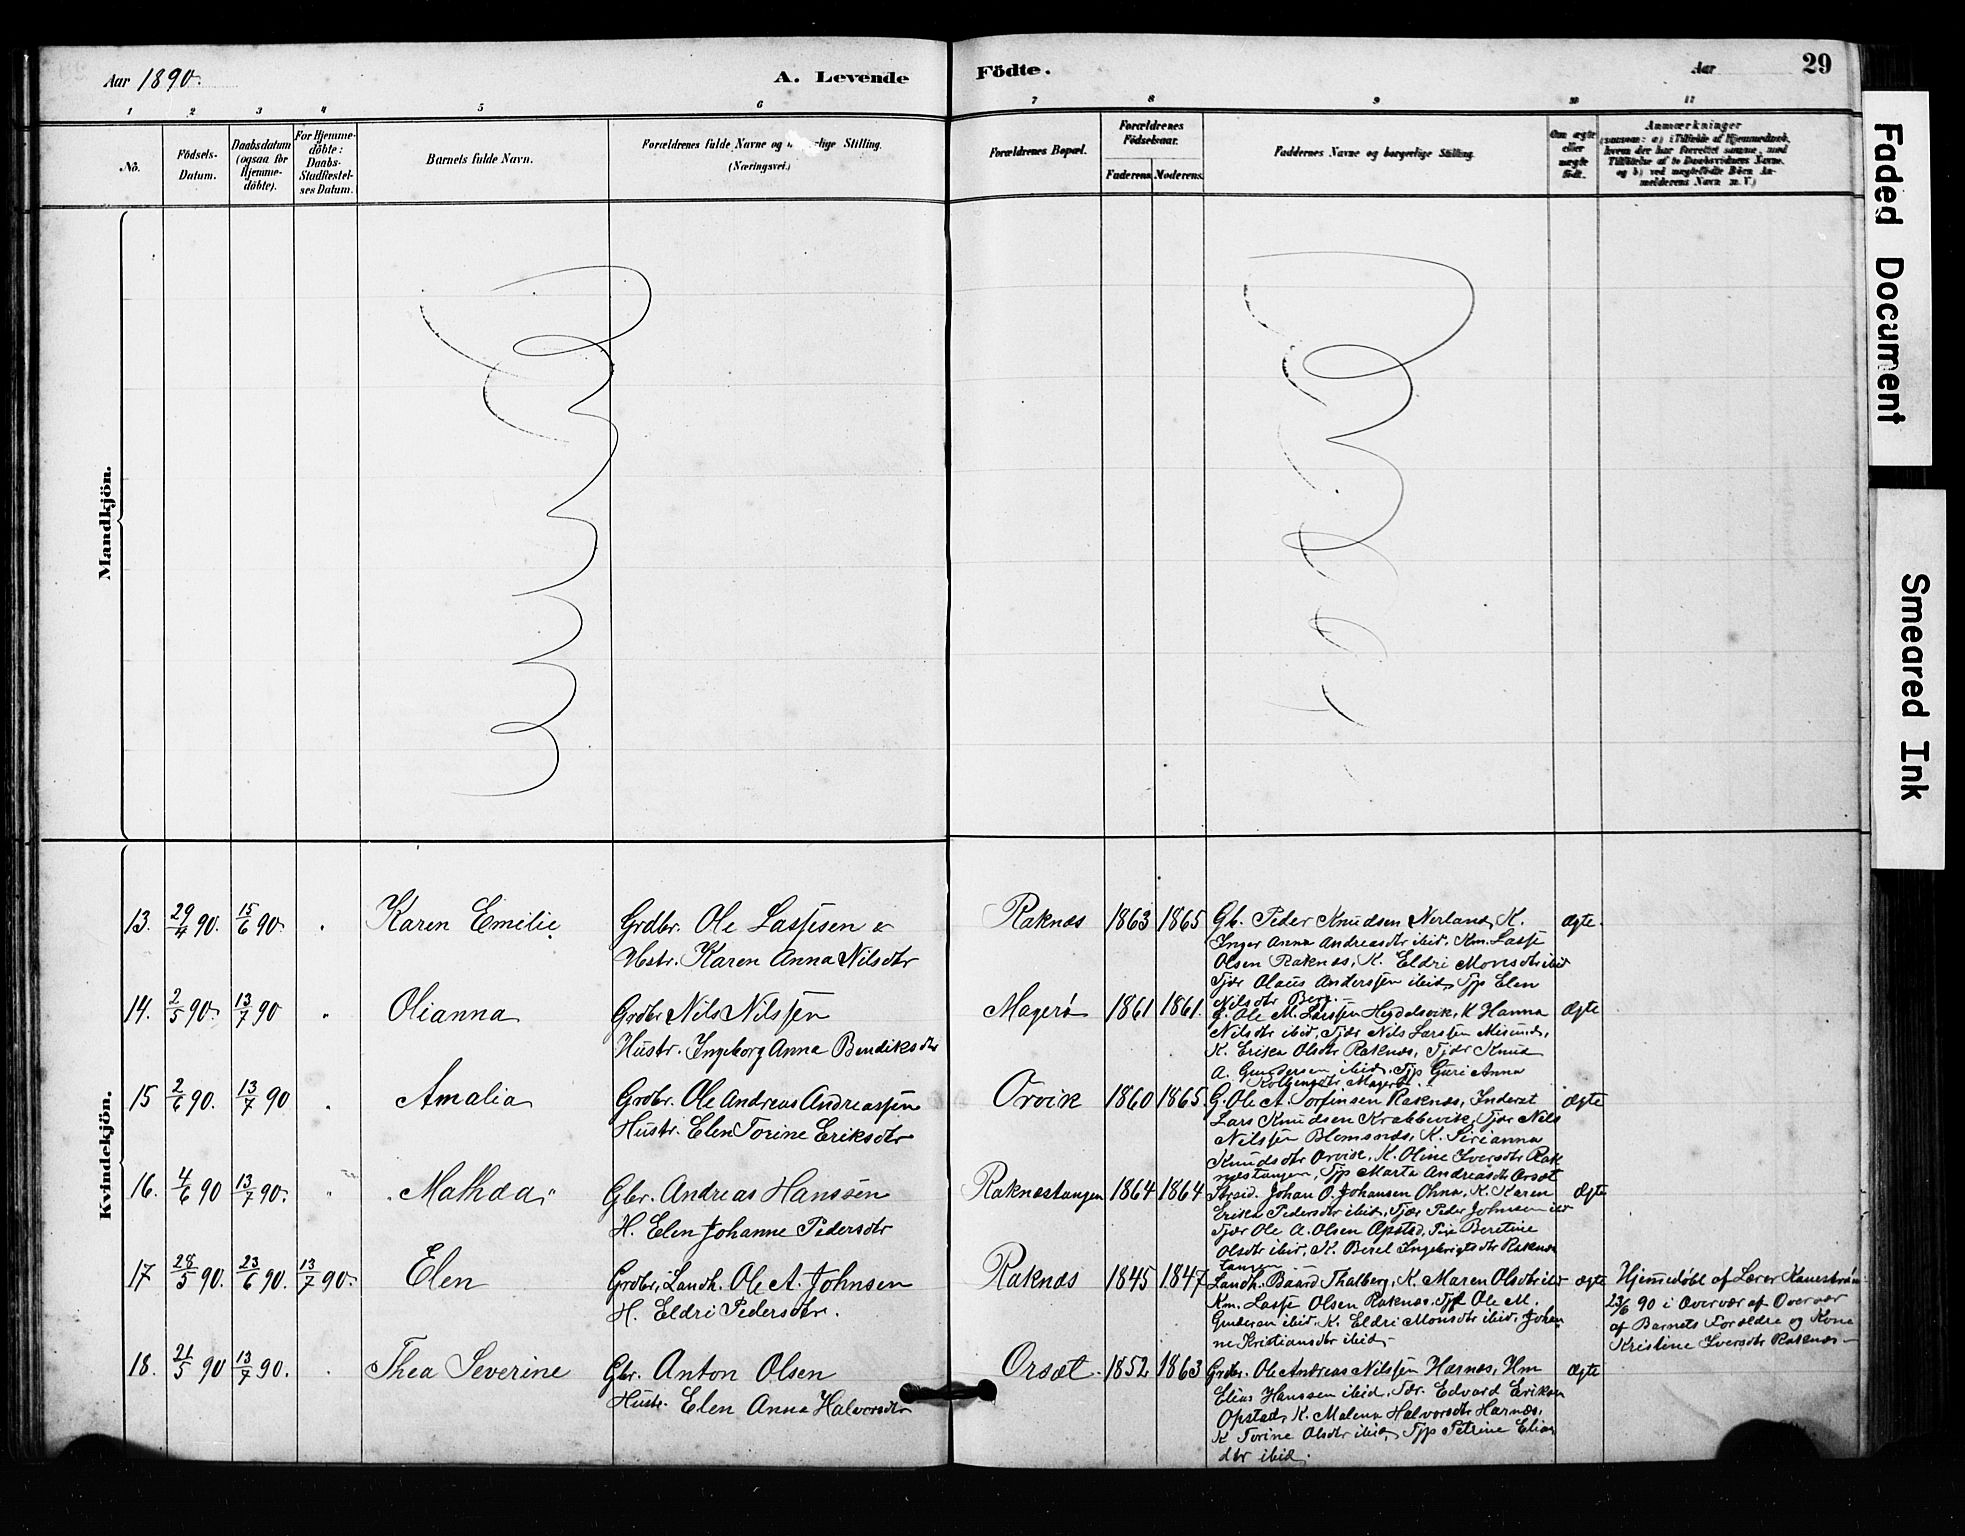 Aar 1890. A. Levende Födte. Aar 29
1 2 3 4 5 6 7 8 9 10 11
No.
Födsels-
Datum.
Daabsdatum
(ogsaa for
Hjemme-
döbte).
For Hjemme-
döbte:
Daabs-
Stadfæstel-
ses Datum.
Barnets fulde Navn.
Forældrenes fulde Navne og borgerlige Stilling.
(Næringsvei.)
Forældrenes Bopæl.
Forældrenes
Födselsaar.
Faderens. Moderens.
Faddernes Navne og borgerlige Stilling.
Om ægte
eller
uægte
født.
Anmærkninger
(saasom: a) i Tilfælde af Hjemmedaab,
hvem der har forrettet samme, med
Tilføielse af to Daabsvidners Navne,
og b) ved uægtefödte Börn An-
melderens Navn m. V.)
Mandkjön.
Kvindekjön.
13. 29/4 90. 15/6 90. Karen Emilie Grdbr. Ole Lassesen &
Hstr. Karen Anna Nilsdtr
Raknæs 1863 1865
Gb. Peder Knudsen Nerland, K.
Inger Anna Andreasdtr ibid, Km. Lasse
Olsen Raknæs, K. Eldri Monsdtr ibid
Tjdr Olaus Anderssen ibid, Tjp Elen
Nilsdtr Berg.
Ægte.
14. 2/5 90. 13/7 90 Olianna Grdbr Nils Nilssen
Hustr. Ingeborg Anna Bendiksdtr
Magerö 1861 1861.
G. Ole M. Larssen Heggdalsvik, K Hanna
Nilsdtr ibid, Tjdr Nils Larssen Misund,
K. Erika Olsdtr Raknæs, Tjdr Knud
A. Gundersen ibid. Tjp Guri Anna
Magerö
Ægte
15 2/6 90. 13/7 90 Amalia Grdbr. Ole Andreas Andreassen
Hustr. Elen Torine Eriksdtr
Orvik 1860 1865
G. Ole A. Torfinsen Raknæs, Inderst
Lars Knudsen Krabbevik, Tjdr Nils
Nilssen Blomsnæs, K. Sirianna
Knudsdtr Orvik, K. Oline Iversdtr Rak
næstangen, Tjp Marta Andreasdtr Orsæt
Ægte
16. 4/6 90 13/7 90. Mathea Gbr. Andreas Hanssen
H. Elen Johanne Pedersdtr
Raknæstangen 1864 1864
Johan O. Johansen Ohna, K. Karen
Erika Pedersdtr ibid, Tjdr Peder Johnsen ibd
Tjdr Ole A. Olsen Opstad, Pige Beretine
Olsdtr ibid, K. Beret Ingebrigtsdtr Raknæs
tangen
Ægte
17 28/5 90. 23/6 90. 13/7 90. Elen Grdbr, Landh. Ole A. Johnsen
H. Eldri Pedersdtr.
Raknæs 1845 1847
Landh. Baard Thalberg, K. Maren Olsdtr ibid
Km. Lasse Olsen Raknæs, Tjf Ole M.
Gundersen ibid, K. Eldri Monsdtr ibid, Johan
ne Kristiansdtr ibid
ægte
Hjemmedöbt af Lærer Kanestrøm
23/6 90 i Overvær af Overvær
af Barnets Forældre og Kone
Kristine Iversdtr Raknæs
18. 21/5 90 13/7 90. Thea Severine Gbr. Anton Olsen
Hustr. Elen Anna Halvorsdtr
Orsæt. 1852 1863
Grdbr. Ole Andreas Nilssen Harnæs, Hm
Elias Hanssen ibid, Tdr. Edvard Eriksen
Opstad, K. Malena Halvorsdtr Harnæs,
K Torine Olsdtr ibid, Tjp Petrine Elias
dtr ibid.
Ægte
Faded Document
Smeared Ink